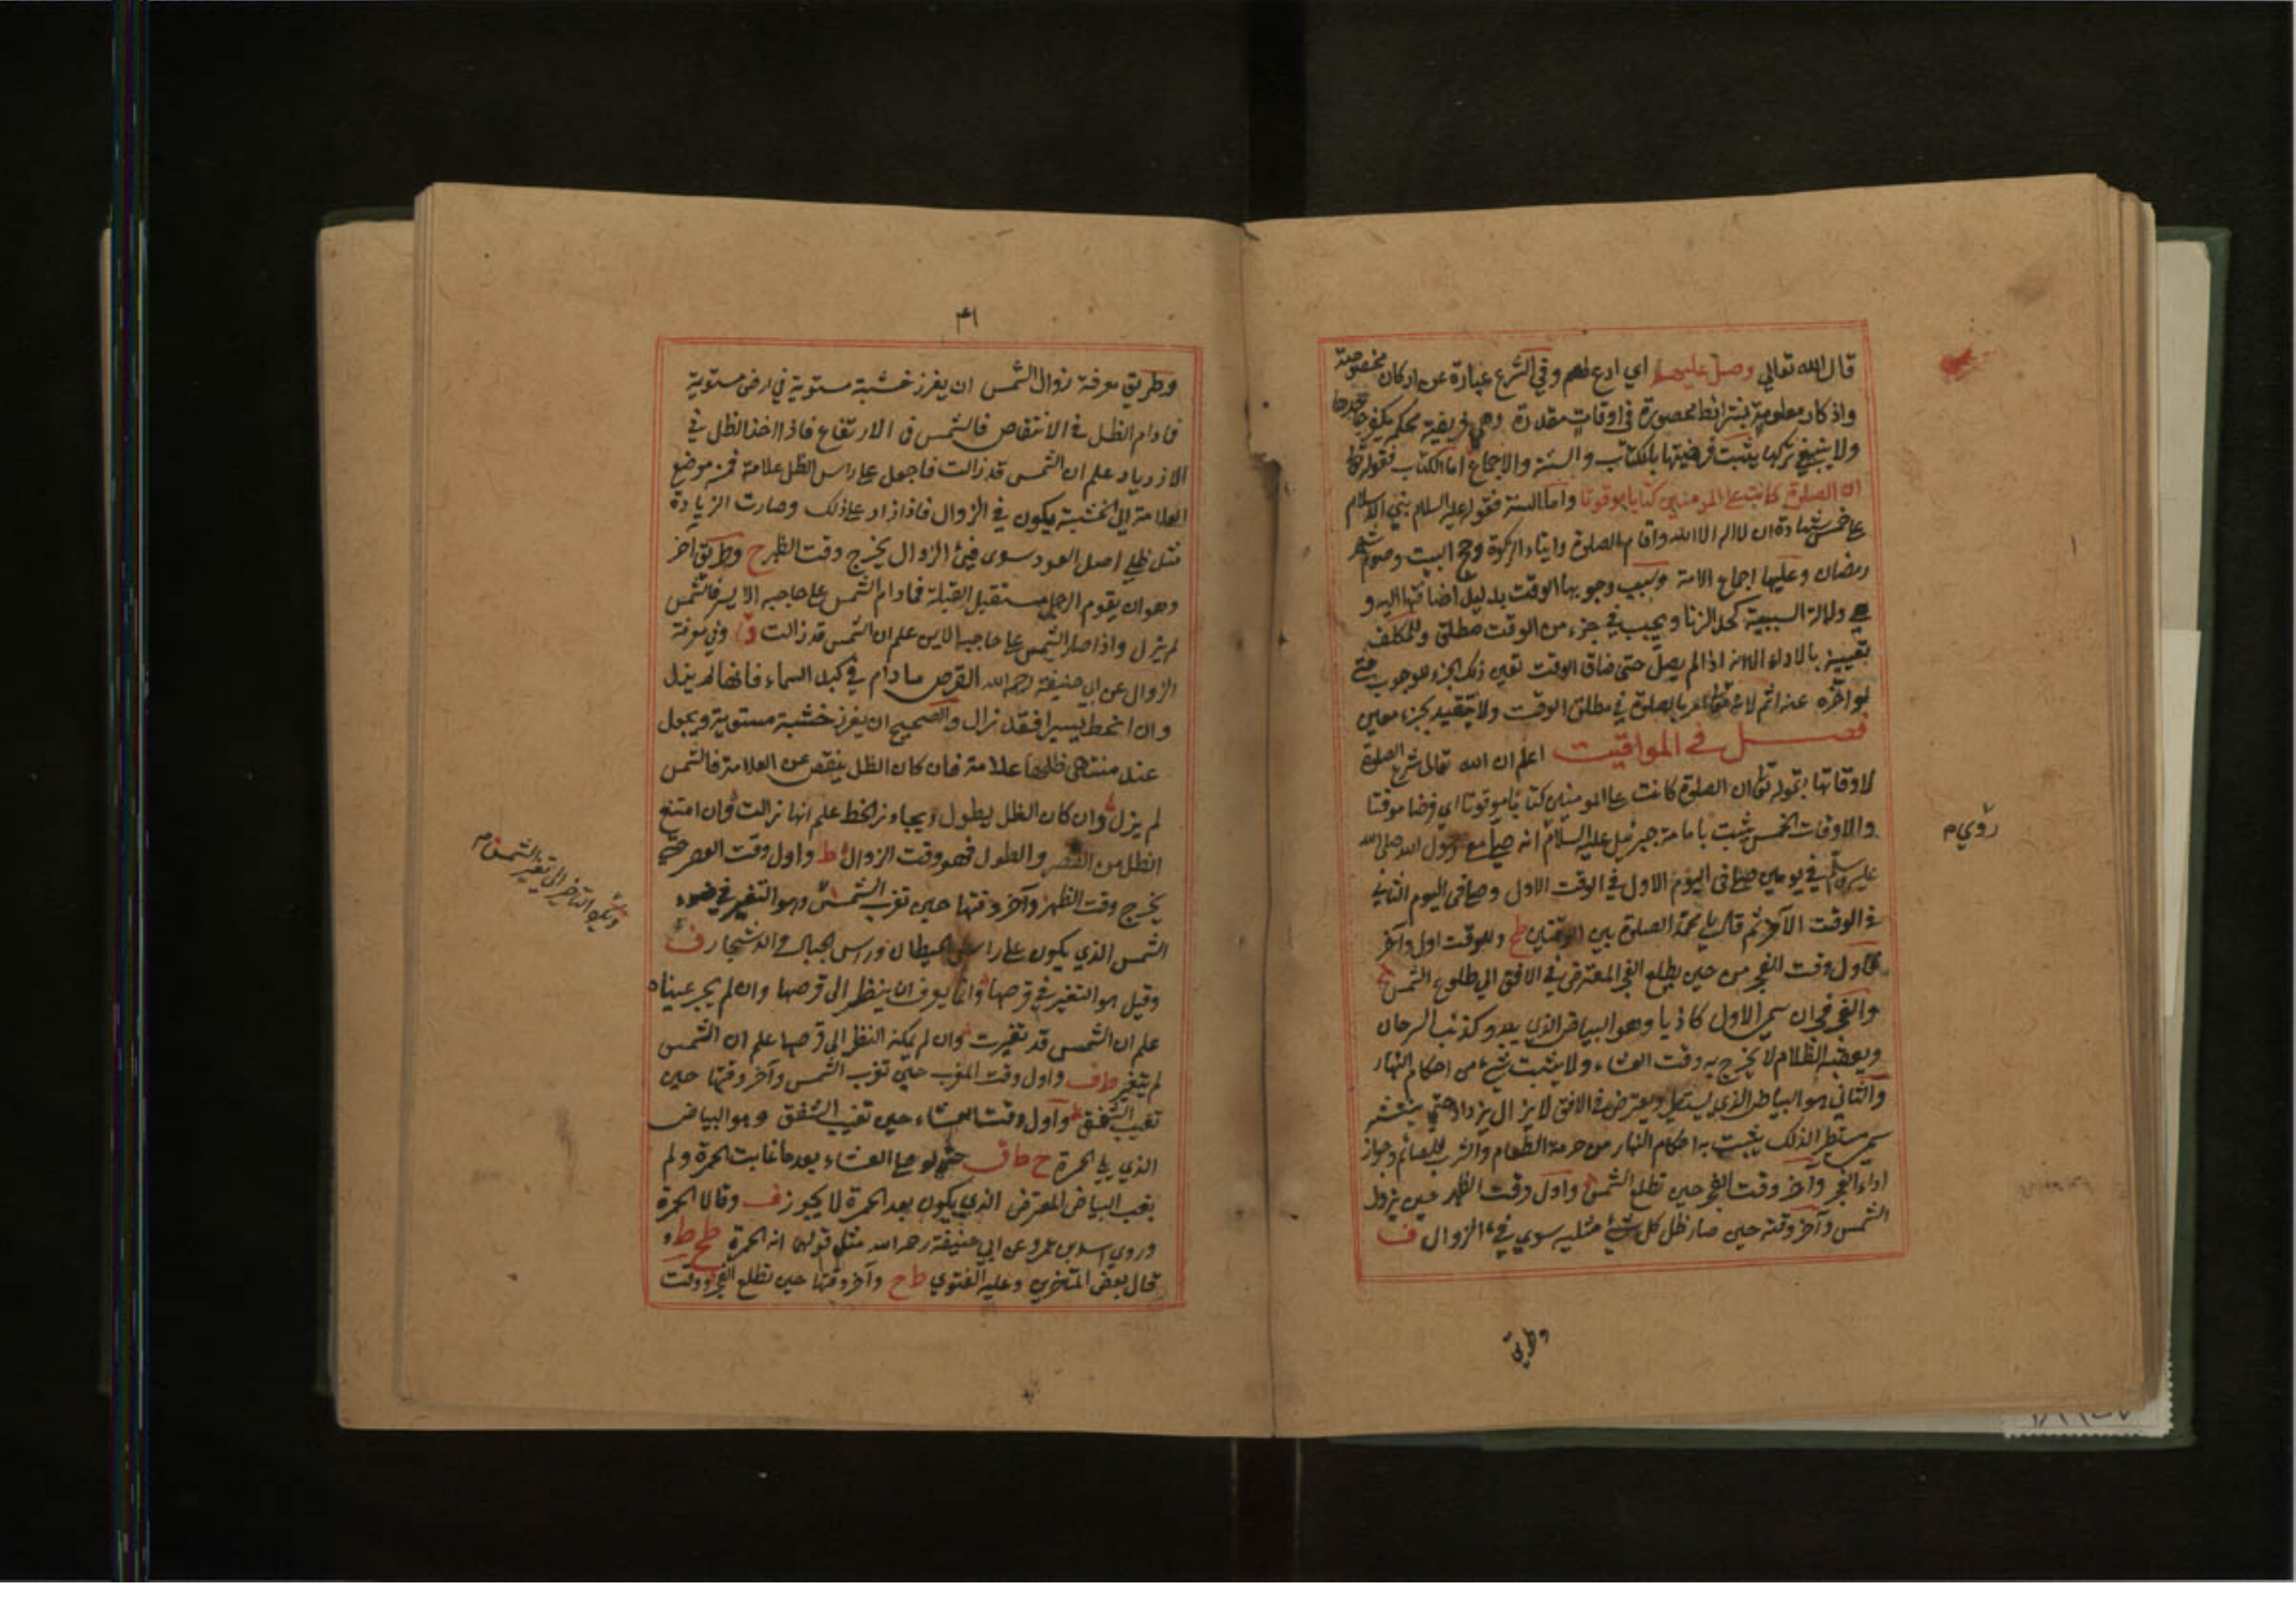 قال الله تعالي وصل عليهم اي ادع لهم وفي الشرع عبارة عن اركان مخصوصة
واذكار معلومة بشرائط محصورة في اوقات مقدرة وهي فريضة محكمة يكفر جاحدها
ولا ينبغي تركها يثبت فرضيتها بالكتاب والسنة والاجماع اما الكتاب فقوله تعا
ان الصلوة كانت علي المومنين كتابا موقوتا واما السنة فقوله عليه السلام بني الاسلام
علي خمس شهادة ان لا اله الا الله واقام الصلوة وايتاء الزكوة وحج البيت وصوم شهر
رمضان وعليها اجماع الامة وسبب وجوبها الوقت بدليل اضافتها اليه و
هي دلالة السببية كحد الزنا ويجب في جزء من الوقت مطلق وللمكلف
تعيينه بالاداء الا انه اذا لم يصل حتى ضاق الوقت تعين ذلك الجزء للوجوب حتي
لو اخره عنه اثم لان الامر بالصلوة في مطلق الوقت ولا تتقيد بجزء معين
فصل في المواقيت اعلم ان الله تعالى شرع الصلوة
لاوقاتها بقوله تعا ان الصلوة كانت علي المومنين كتابا موقوتا اي فرضا موقتا
والاوقات الخمس يثبت بامامة جبرئيل عليه السلام انه صلي مع رسول الله صلى الله
عليه وسلم في يومين صلي في اليوم الاول في الوقت الاول وصلي في اليوم الثاني
في الوقت الآخر ثم قال يا محمد الصلوة بين الوقتين ط وللوقت اول وآخر
فاول وقت الفجر من حين يطلع الفجر المعترض في الافق الي طلوع الشمس
والفجر فجران سمي الاول كاذبا وهو البياض الذي يبدو كذنب السرحان
ويعقبه الظلام لا يخرج به وقت العشاء ولا يثبت شيء من احكام النهار
والثاني هو البياض الذي يستطير ويعترض في الافق لا يزال يزداد حتي ينتشر
سمي مستطيرا لذلك يثبت به احكام النهار من حرمة الطعام والشرب للصائم وجواز
اداء الفجر وآخر وقت الفجر حين تطلع الشمس واول وقت الظهر حين يزول
الشمس وآخر وقته حين صار ظل كل شيء مثليه سوي فيء الزوال ف
وطريق
روي م
٤١
وطريق معرفة زوال الشمس ان يغرز خشبة مستوية في ارض مستوية
فما دام الظل في الانتقاص فالشمس في الارتفاع فاذا اخذ الظل في
الازدياد علم ان الشمس قد زالت فاجعل علي راس الظل علامة فمن موضع
العلامة الى الخشبة يكون في الزوال فاذا ازداد علي ذلك وصارت الزيادة
مثل ظل اصل العود سوى فيئ الزوال يخرج وقت الظهر ح وطريق آخر
وهو ان يقوم الرجل مستقبل القبلة فما دام الشمس علي حاجبه الايسر فالشمس
لم يزل واذا صار الشمس علي حاجبه الايمن علم ان الشمس قد زالت وفي معرفة
الزوال عن ابي حنيفة رحمه الله القرص ما دام في كبد السماء فانها لم يزل
وان انحط يسيرا فقد زال والصحيح ان يغرز خشبة مستوية ويجعل
عند منتهى ظلها علامة فان كان الظل ينقص عن العلامة فالشمس
لم يزل وان كان الظل يطول ويجاوز الخط علم انها زالت وان امتنع
الظل من القصر والطول فهو وقت الزوال ط واول وقت العصر حين
يخرج وقت الظهر وآخر وقتها حين تغرب الشمس وهو التغير في ضوء
الشمس الذي يكون علي راس الحيطان وراس الجبال والاشجار ف
وقيل هو التغير في قرصها وانما يعرف ان ينظر الى قرصها وان لم يحر عيناه
علم ان الشمس قد تغيرت وان لم يمكنه النظر الى قرصها علم ان الشمس
لم يتغير ط ف واول وقت المغرب حين تغرب الشمس وآخر وقتها حين
تغيب الشفق واول وقت العشاء حين تغيب الشفق وهو البياض
الذي يلي الحمرة ح ط ف حتي لو صلي العشاء بعد ما غابت الحمرة ولم
يغب البياض المعترض الذي يكون بعد الحمرة لا يجوز ف وقالا الحمرة
وروي اسد بن عمرو عن ابي حنيفة رحمه الله مثل قولهما انه الحمرة ط ح ط و
قال بعض المتاخرين وعليه الفتوي ط ح وآخر وقتها حين تطلع الفجر ووقت
ويكره التاخير الى تغير الشمس م